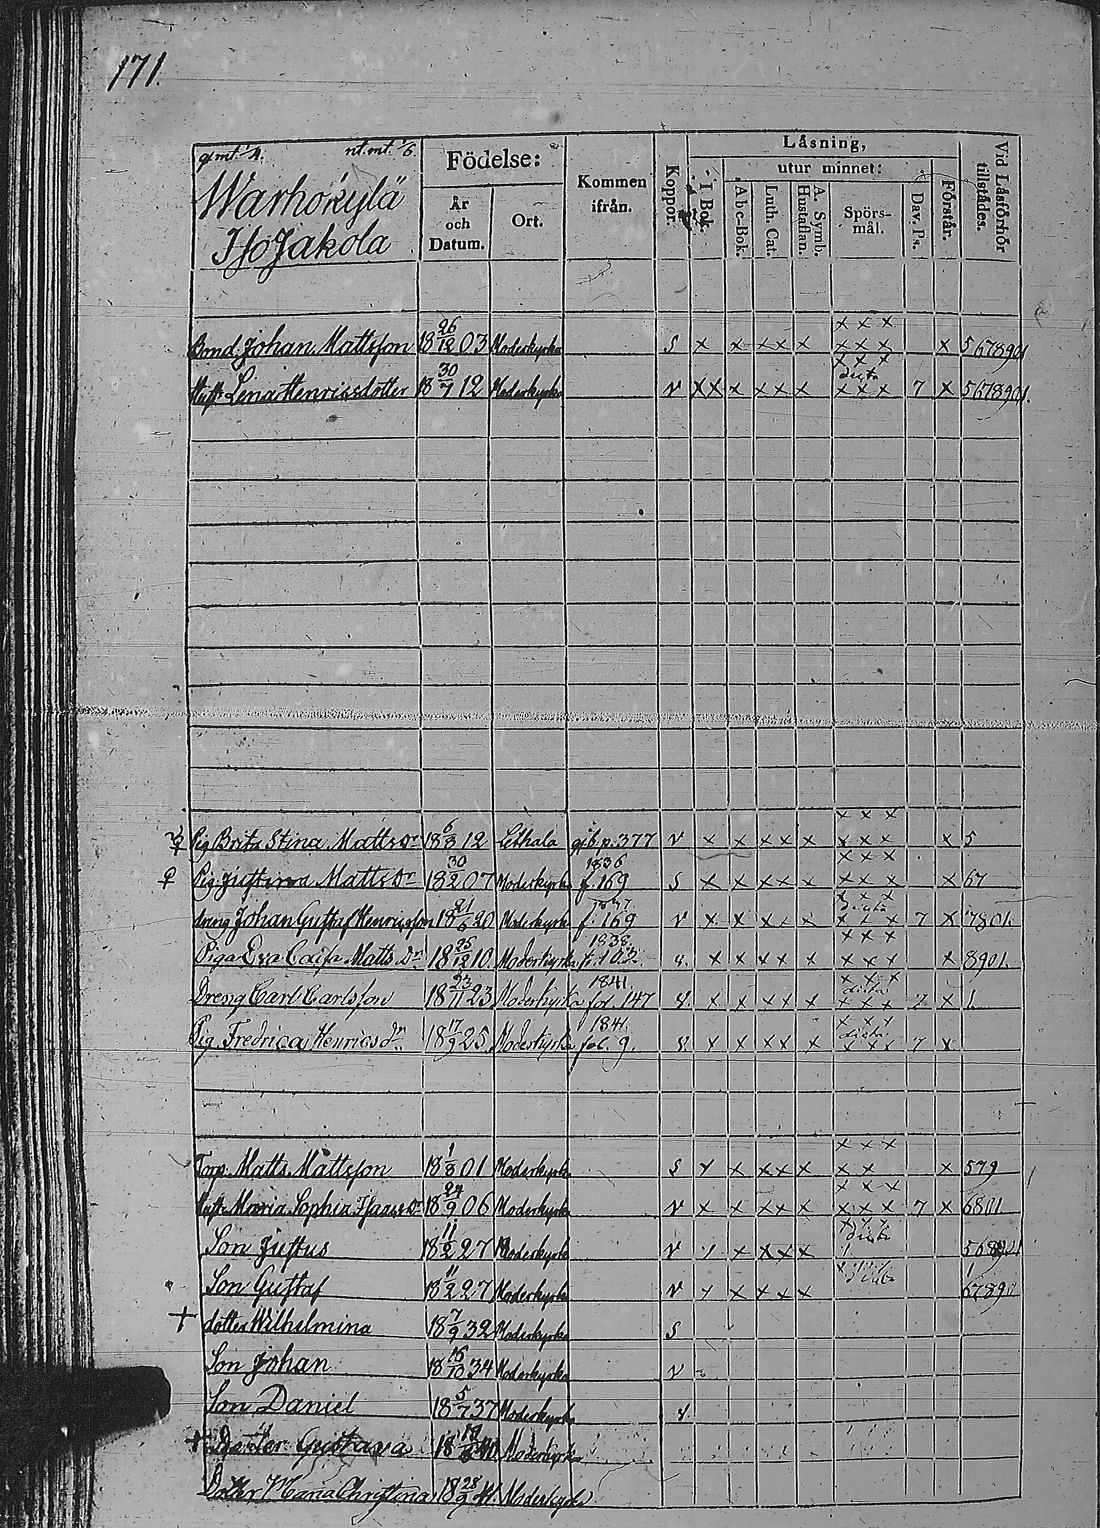 171.
g.mt. 1/4. nt.mt. 1/6.
Warhokylä
Iso Jakola
Födelse:
År
och
Datum.
Ort.
Kommen
ifrån.
Koppor.
Läsning,
I Bok.
utur minnet:
Abc-Bok.
Luth. Cat.
A. Symb.
Hustaflan.
Spörs-
mål.
Dav. Ps.
Förstår.
Vid Läsförhör
tillstädes.
x x x
Bond. Johan Mattsson 18 26/12 03 Moderkyrka S x x x x x x x x x x 5678901
x x x
dicta
Hust. Lena Henricsdotter 18 30/7 12 Moderkyrka v x x x x x x x x x 7 x 5678901.
x x x
Pig Brita Stina Mattsdr 18 6/8 12 Lethala p. 377 v x x x x x x x x x x 5
x x x
1836
Pig Justina Mattsdr 18 30/2 07 Moderkyrka f. 169 S x x x x x x x x x x 67
dicta
dräng Johan Gustaf Henricsson 18 21/6 20 Moderkyrka f. 169 v x x x x x x x x 7 x 7801.
x x x
1838.
Piga Eva Caisa Mattsdr 18 25/12 10. Moderkyrka f. 103. v. x x x x x x x 8901.
x x x
1841.
dicta
Dreng Carl Carlsson 18 23/11 23 Moderkyrka fol. 147 v. x x x x x x x x 7 x 1.
x x x
1841.
dicta
Pig. Fredrica Henricsdr. 18 17/9 25. Moderkyrka fol. 9. v. x x x x x x x x x 7 x
x x x
Torp. Matts Mattsson 18 1/8 01 Moderkyrka S x x x x x x x x x 579
x x x
Hust. Maria Sophia Isaacsdr 18 24/9 06 Moderkyrka v x x x x x x x x x 7 x 6801
dicta
Son Justus 18 11/2 27 Moderkyrka v x x x x x
Son Gustaf 18 11/2 27 Moderkyrka v x x x x x 67890
+ dotter Wilhelmina 18 7/9 32 Moderkyrka S
Son Johan 18 16/10 34 Moderkyrka v
Son Daniel 18 5/7 37 Moderkyrka v.
+ dotter Gustava 18 40 Moderkyrka
Dotter Maria Christina 18 28/9 41. Moderkyrka